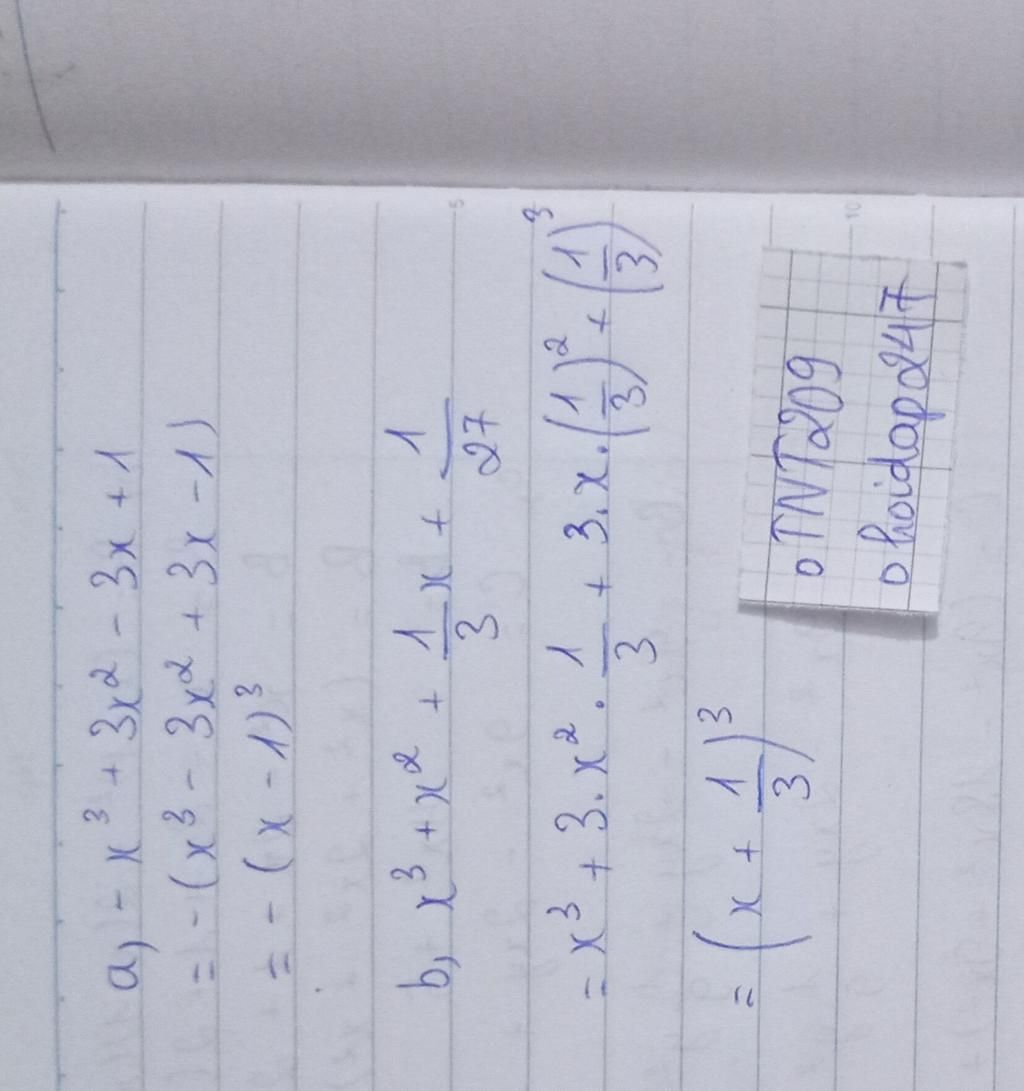 a, - x³ + 3x² - 3x + 1
= - (x³ - 3x² + 3x - 1)
= - (x - 1)³
b, x³ + x² + 1/3 x + 1/27
= x³ + 3.x² . 1/3 + 3.x.(1/3)² + (1/3)³
= (x + 1/3)³
o TNT209
o hoidap247
5
10